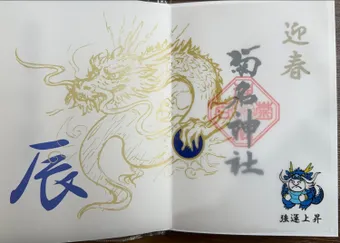 迎春
菊名神社
辰
強運上昇